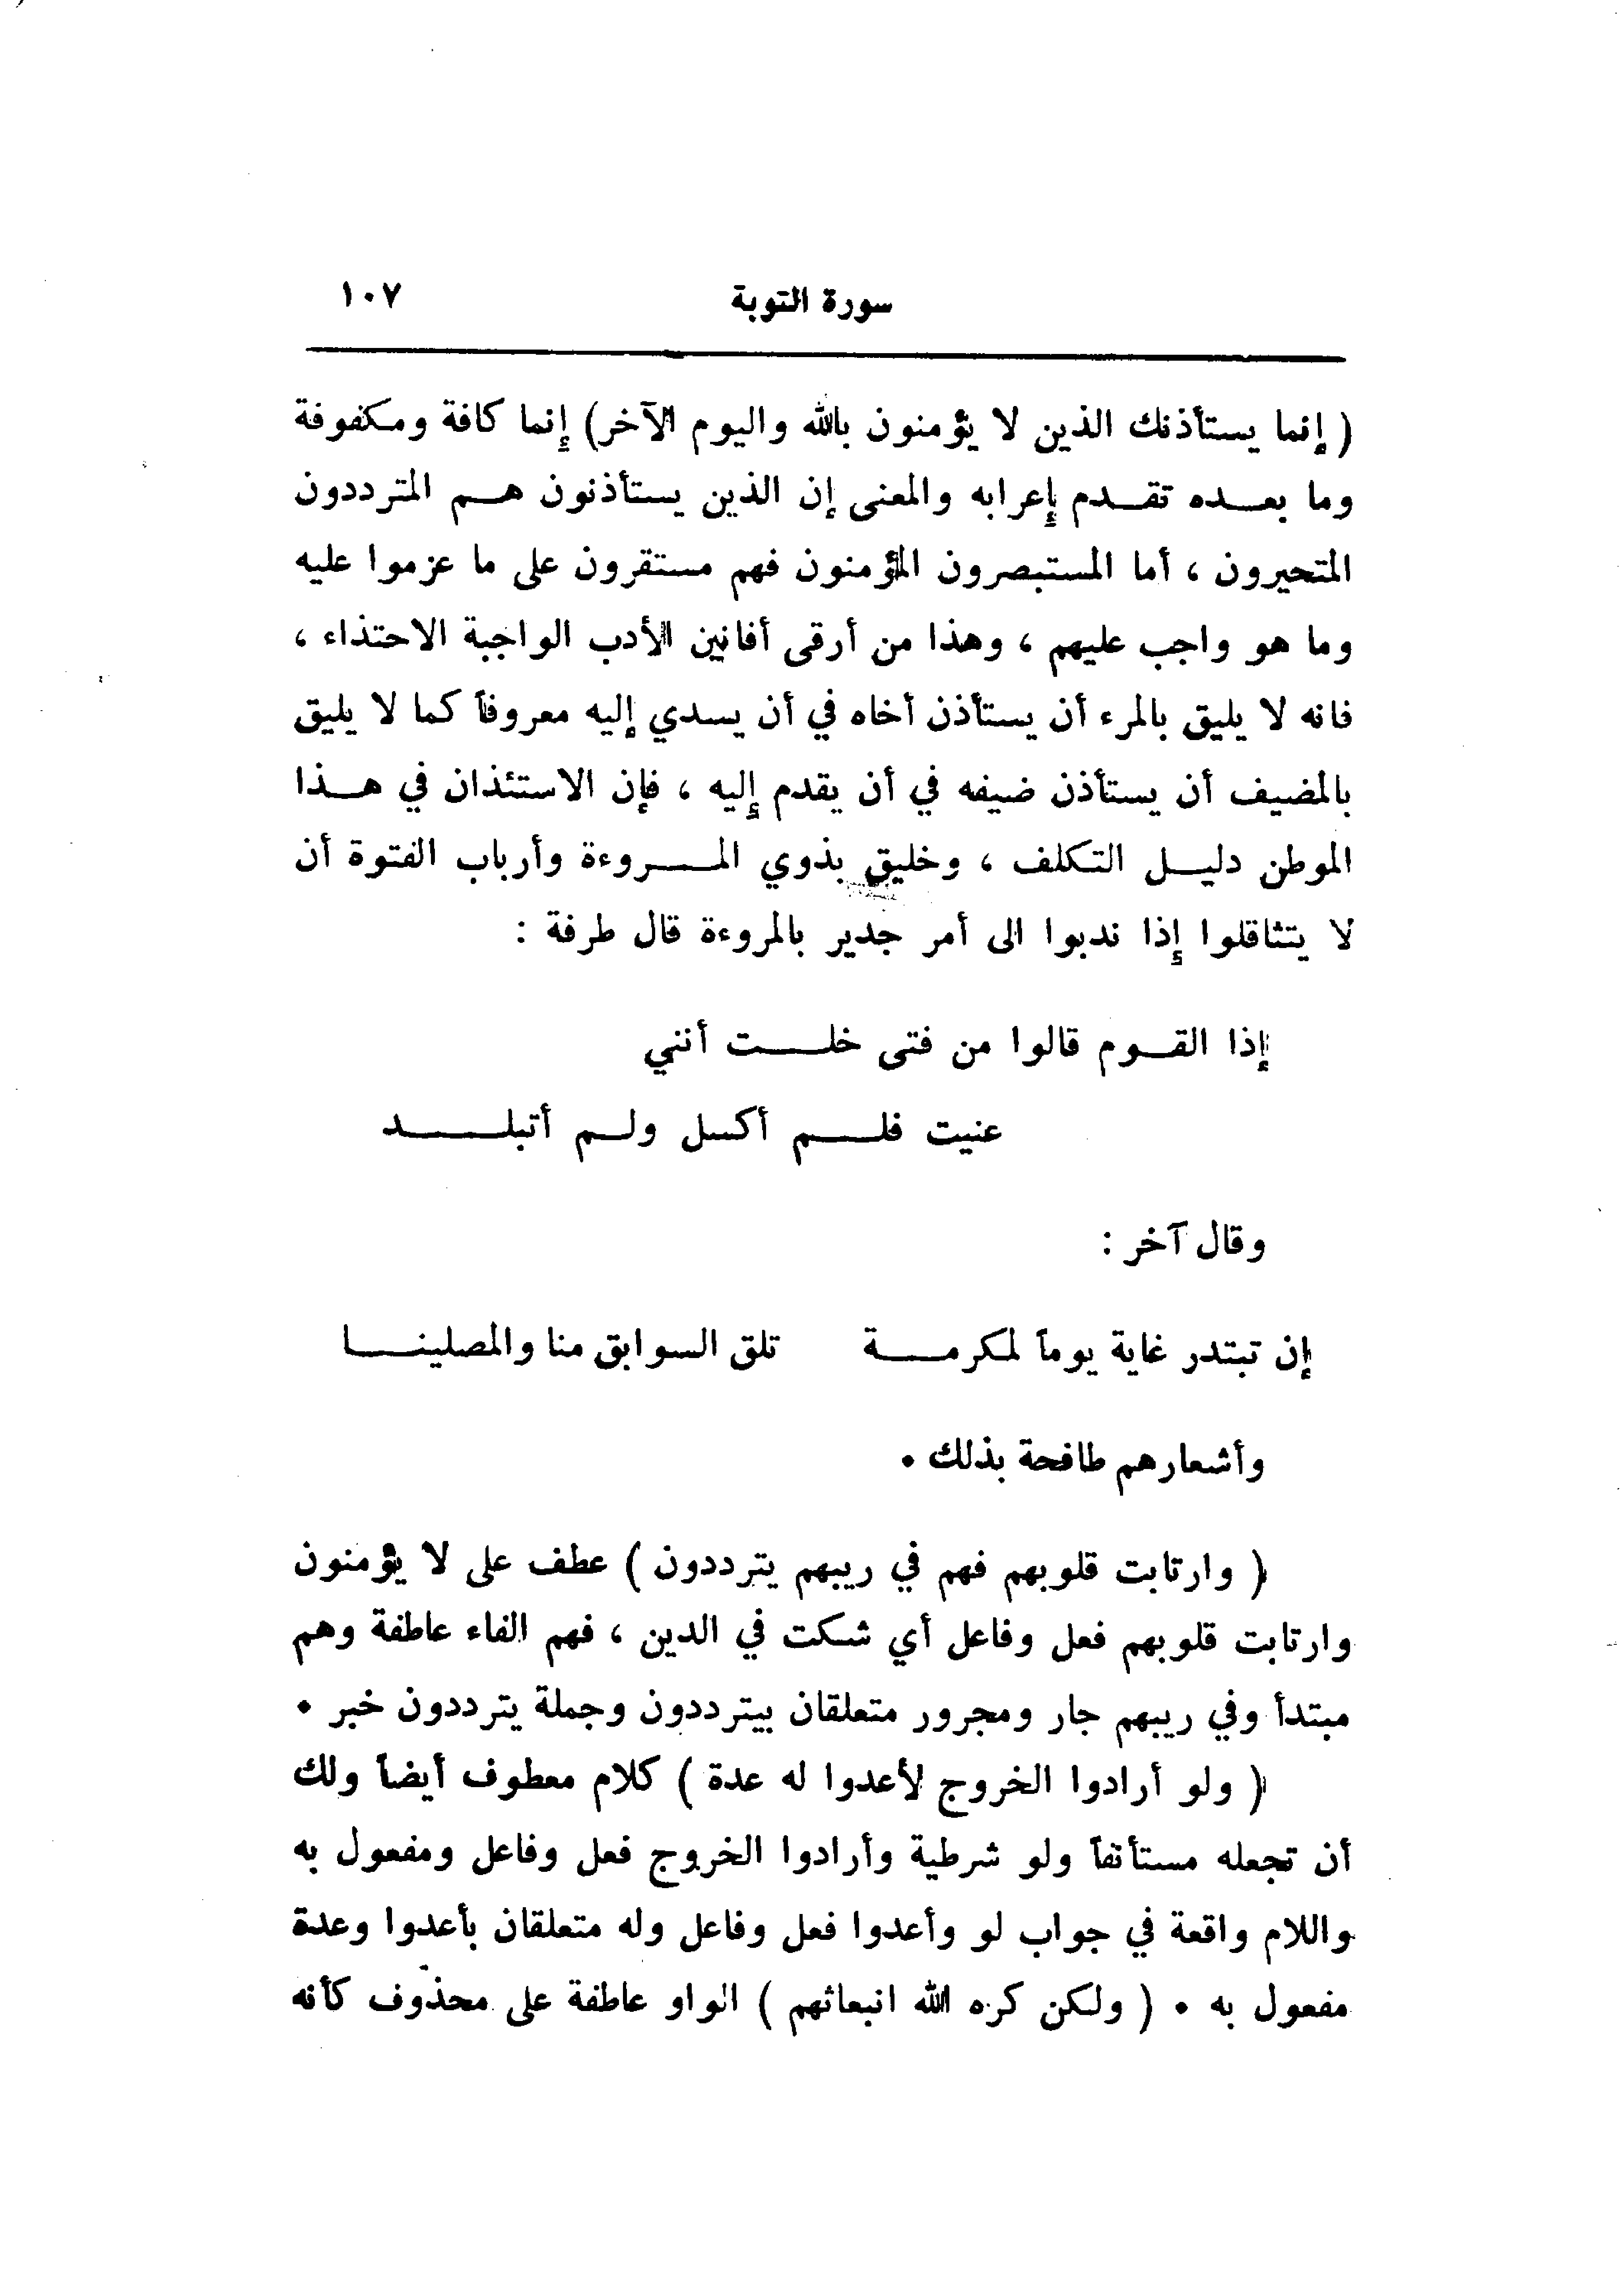 سورة التوبة ١٠٧
( إنما يستأذنك الذين لا يؤمنون بالله واليوم الآخر) إنما كافة ومكفوفة
وما بعده تقدم إعرابه والمعنى إن الذين يستأذنون هم المترددون
المتحيرون ، أما المستبصرون المؤمنون فهم مستقرون على ما عزموا عليه
وما هو واجب عليهم ، وهذا من أرقى أفانين الأدب الواجبة الاحتذاء ،
فانه لا يليق بالمرء أن يستأذن أخاه في أن يسدي إليه معروفاً كما لا يليق
بالمضيف أن يستأذن ضيفه في أن يقدم إليه ، فإن الاستئذان في هذا
الموطن دليل التكلف ، وخليق بذوي المروءة وأرباب الفتوة أن
لا يتثاقلوا إذا ندبوا الى أمر جدير بالمروءة قال طرفة :
إذا القوم قالوا من فتى خلت أنني
عنيت فلم أكسل ولم أتبلد
وقال آخر :
إن تبتدر غاية يوماً لمكرمة تلق السوابق منا والمصلينا
وأشعارهم طافحة بذلك .
( وارتابت قلوبهم فهم في ريبهم يترددون ) عطف على لا يؤمنون
وارتابت قلوبهم فعل وفاعل أي شكت في الدين ، فهم الفاء عاطفة وهم
مبتدأ وفي ريبهم جار ومجرور متعلقان بيترددون وجملة يترددون خبر .
( ولو أرادوا الخروج لأعدوا له عدة ) كلام معطوف أيضاً ولك
أن تجعله مستأنفاً ولو شرطية وأرادوا الخروج فعل وفاعل ومفعول به
واللام واقعة في جواب لو وأعدوا فعل وفاعل وله متعلقان بأعدوا وعدة
مفعول به . ( ولكن كره الله انبعاثهم ) الواو عاطفة على محذوف كأنه